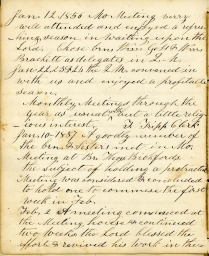 Jan. 12 1856 Mo. Meeting very
well attended and enjoyed a refre-
shing season in waiting upon the
Lord. Chose brn Wm Gott & Wm
Brackett as delegates in Q. M.
Jan. 22d 23d & 24 the Q. M. convened in
with us and enjoyed a profitable
season.
Monthly Meetings through the
year as usual, but a little relig-
ious interest. Tripp Clerk
Jan. 10 - 1857. A goodly number of
the brn & Sisters met in Mo.
Meeting at Br Thos Bickfords.
The subject of holding a protracted
Meeting was considered & concluded
to hold one to commence the first
week in Feb.
Feb. 2 A meeting commenced at
the Meeting house & continued
two weeks the Lord blessed the
effort & revived his work in the